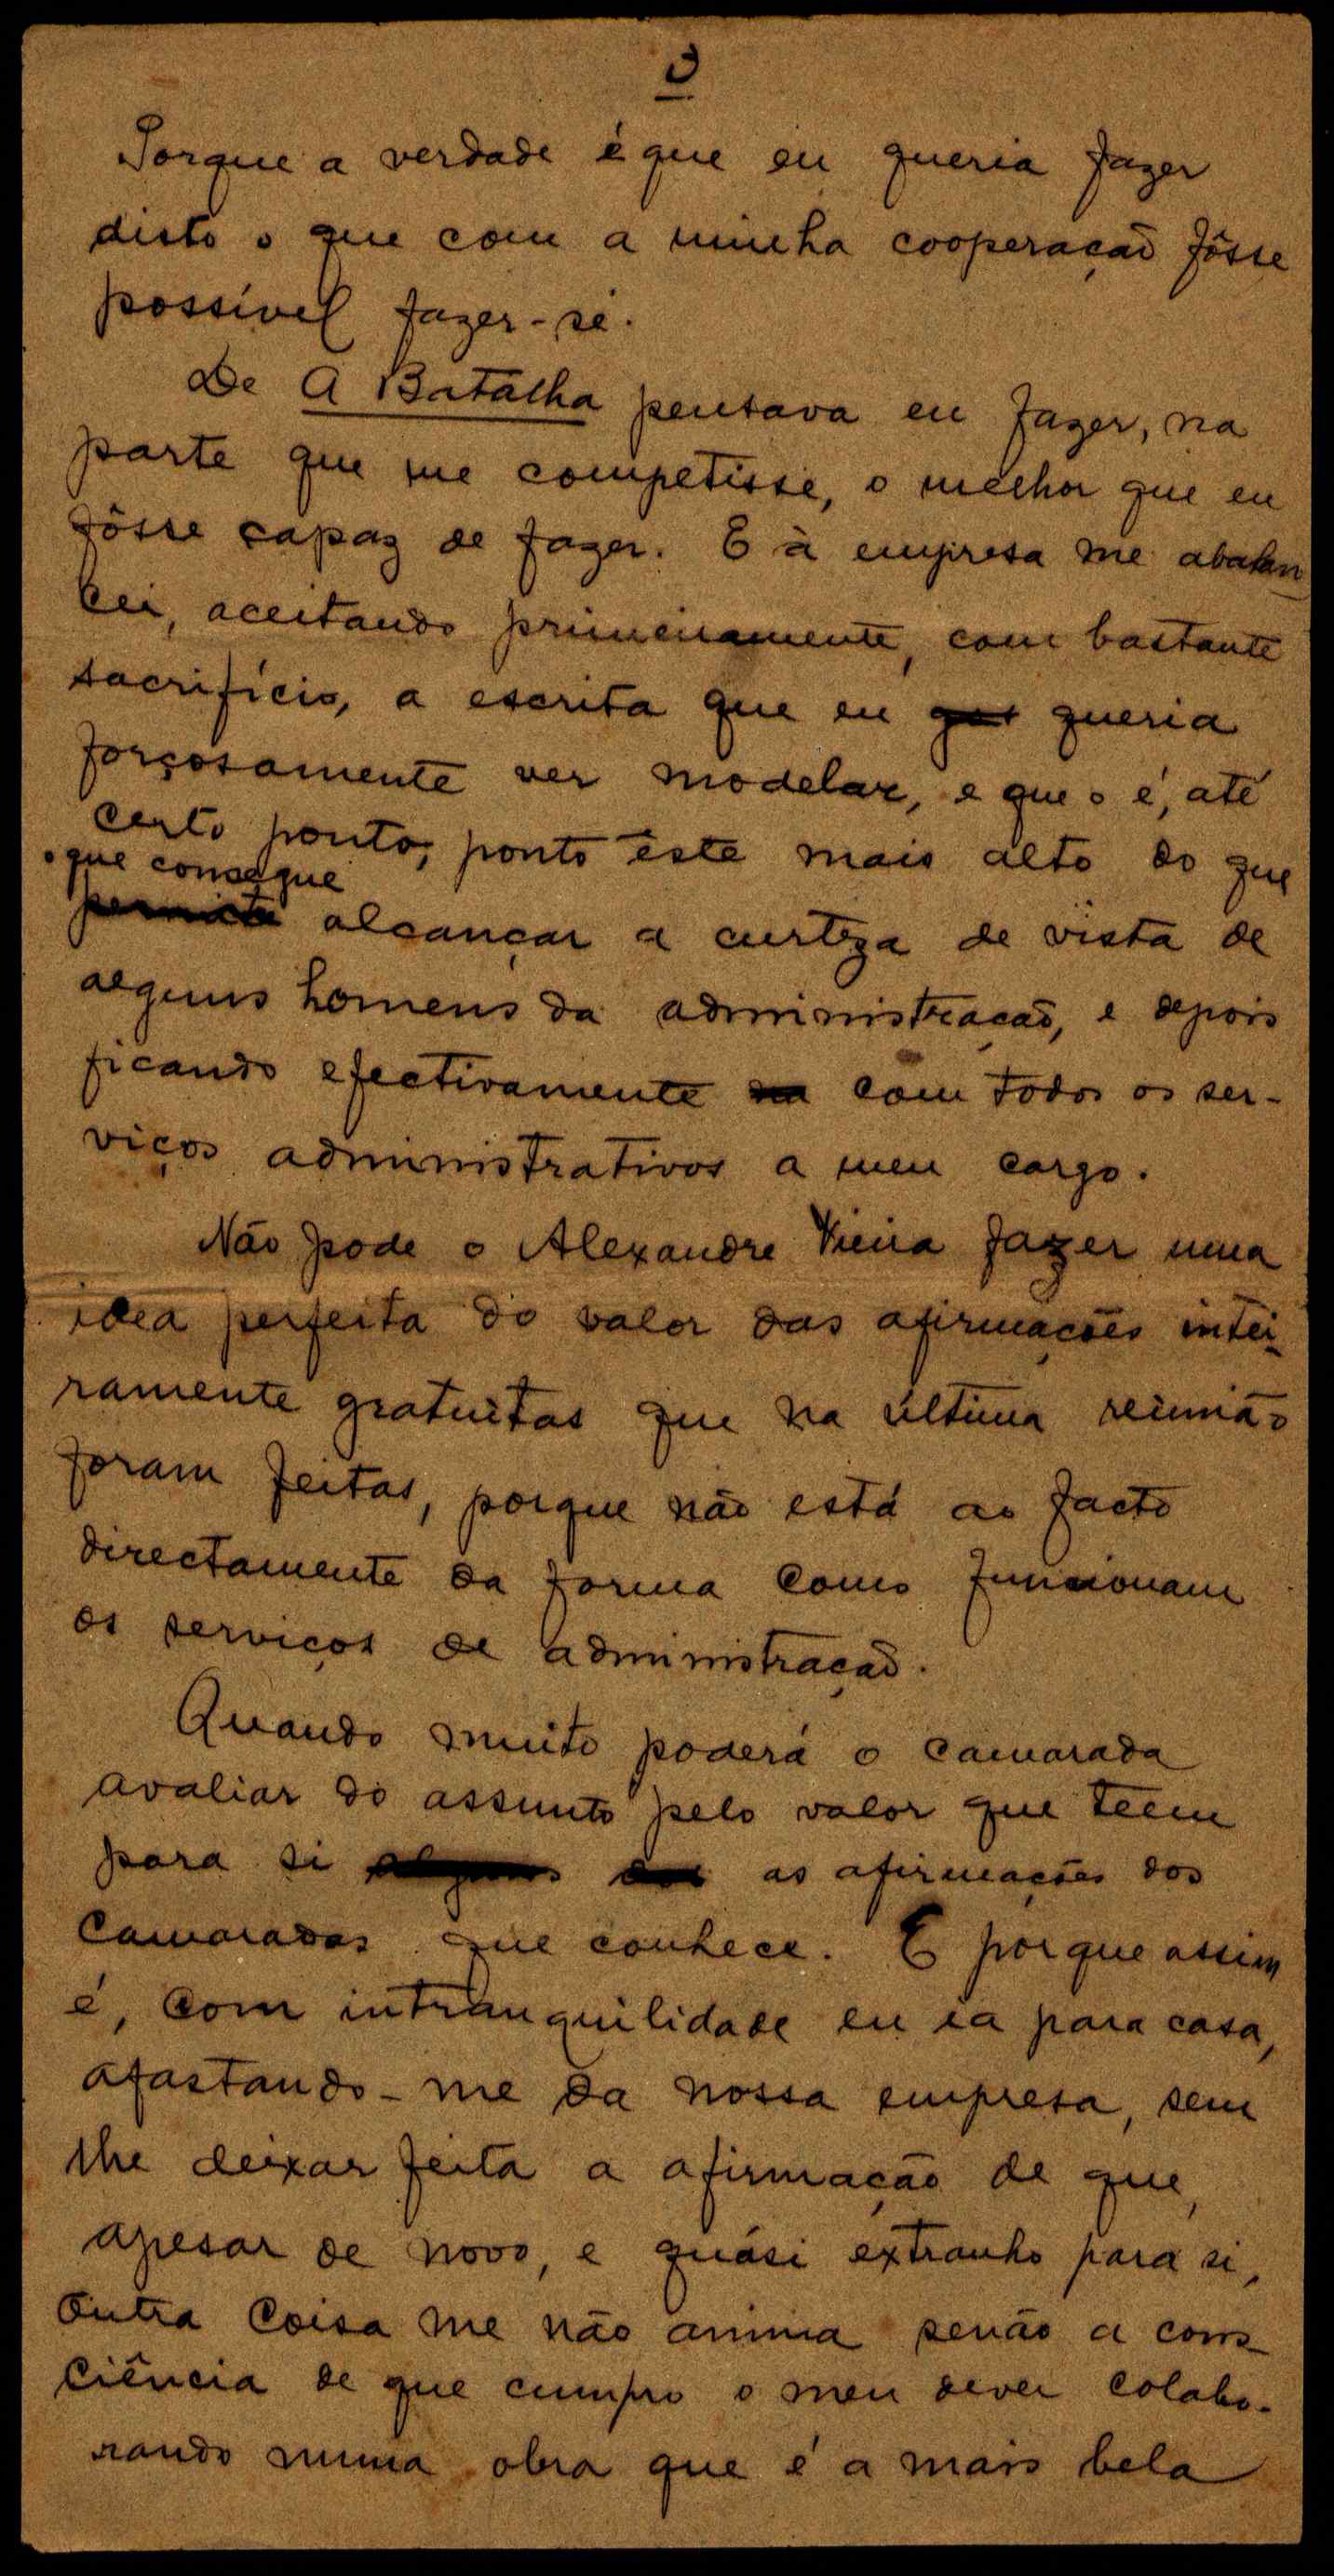 3
Porque a verdade é que eu queria fazer
disto o que com a minha cooperação fôsse
possível fazer-se.
De A Batalha pensava eu fazer, na
parte que me competisse, o melhor que eu
fôsse capaz de fazer. E à empresa me abalan
cei, aceitando primeiramente, com bastante
sacrifício, a escrita que eu queria
forçosamente ver modelar, e que o é, até
certo ponto, ponto êste mais alto do que
o que consegue
alcançar a curteza de vista de
alguns homens da administração, e depois
ficando efectivamente com todos os ser-
viços administrativos a meu cargo.
Não pode o Alexandre Vieira fazer uma
idea perfeita do valor das afirmações intei-
ramente gratuitas que na última reünião
foram feitas, porque não está ao facto
directamente da forma como funcionam
os serviços de administração.
Quando muito poderá o camarada
avaliar do assunto pelo valor que teem
para si as afirmações dos
camaradas que conhece. E porque assim
é, com intranquilidade eu ia para casa,
afastando-me da nossa empresa, sem
lhe deixar feita a afirmação de que,
apesar de novo, e quási extranho para si,
outra coisa me não anima senão a cons-
ciência de que cumpro o meu dever colabo-
rando numa obra que é a mais bela